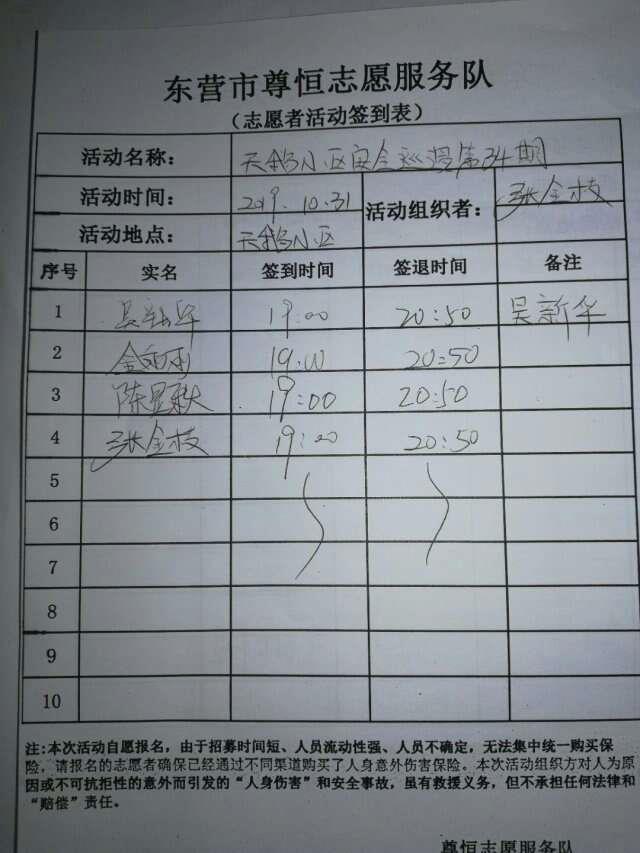 东营市尊恒志愿服务队
（志愿者活动签到表）
活动名称： 天鹅小区安全巡逻第34期
活动时间： 2019.10.31 活动组织者： 张金枝
活动地点： 天鹅小区
序号 实名 签到时间 签退时间 备注
1 吴新华 19:00 20:50 吴新华
2 19:00 20:50
3 陈显秋 19:00 20:50
4 张金枝 19:00 20:50
5
6
7
8
9
10
注:本次活动自愿报名，由于招募时间短、人员流动性强、人员不确定，无法集中统一购买保
险，请报名的志愿者确保已经通过不同渠道购买了人身意外伤害保险。本次活动组织方对人为原
因或不可抗拒性的意外而引发的“人身伤害”和安全事故，虽有救援义务，但不承担任何法律和
“赔偿”责任。
尊恒志愿服务队